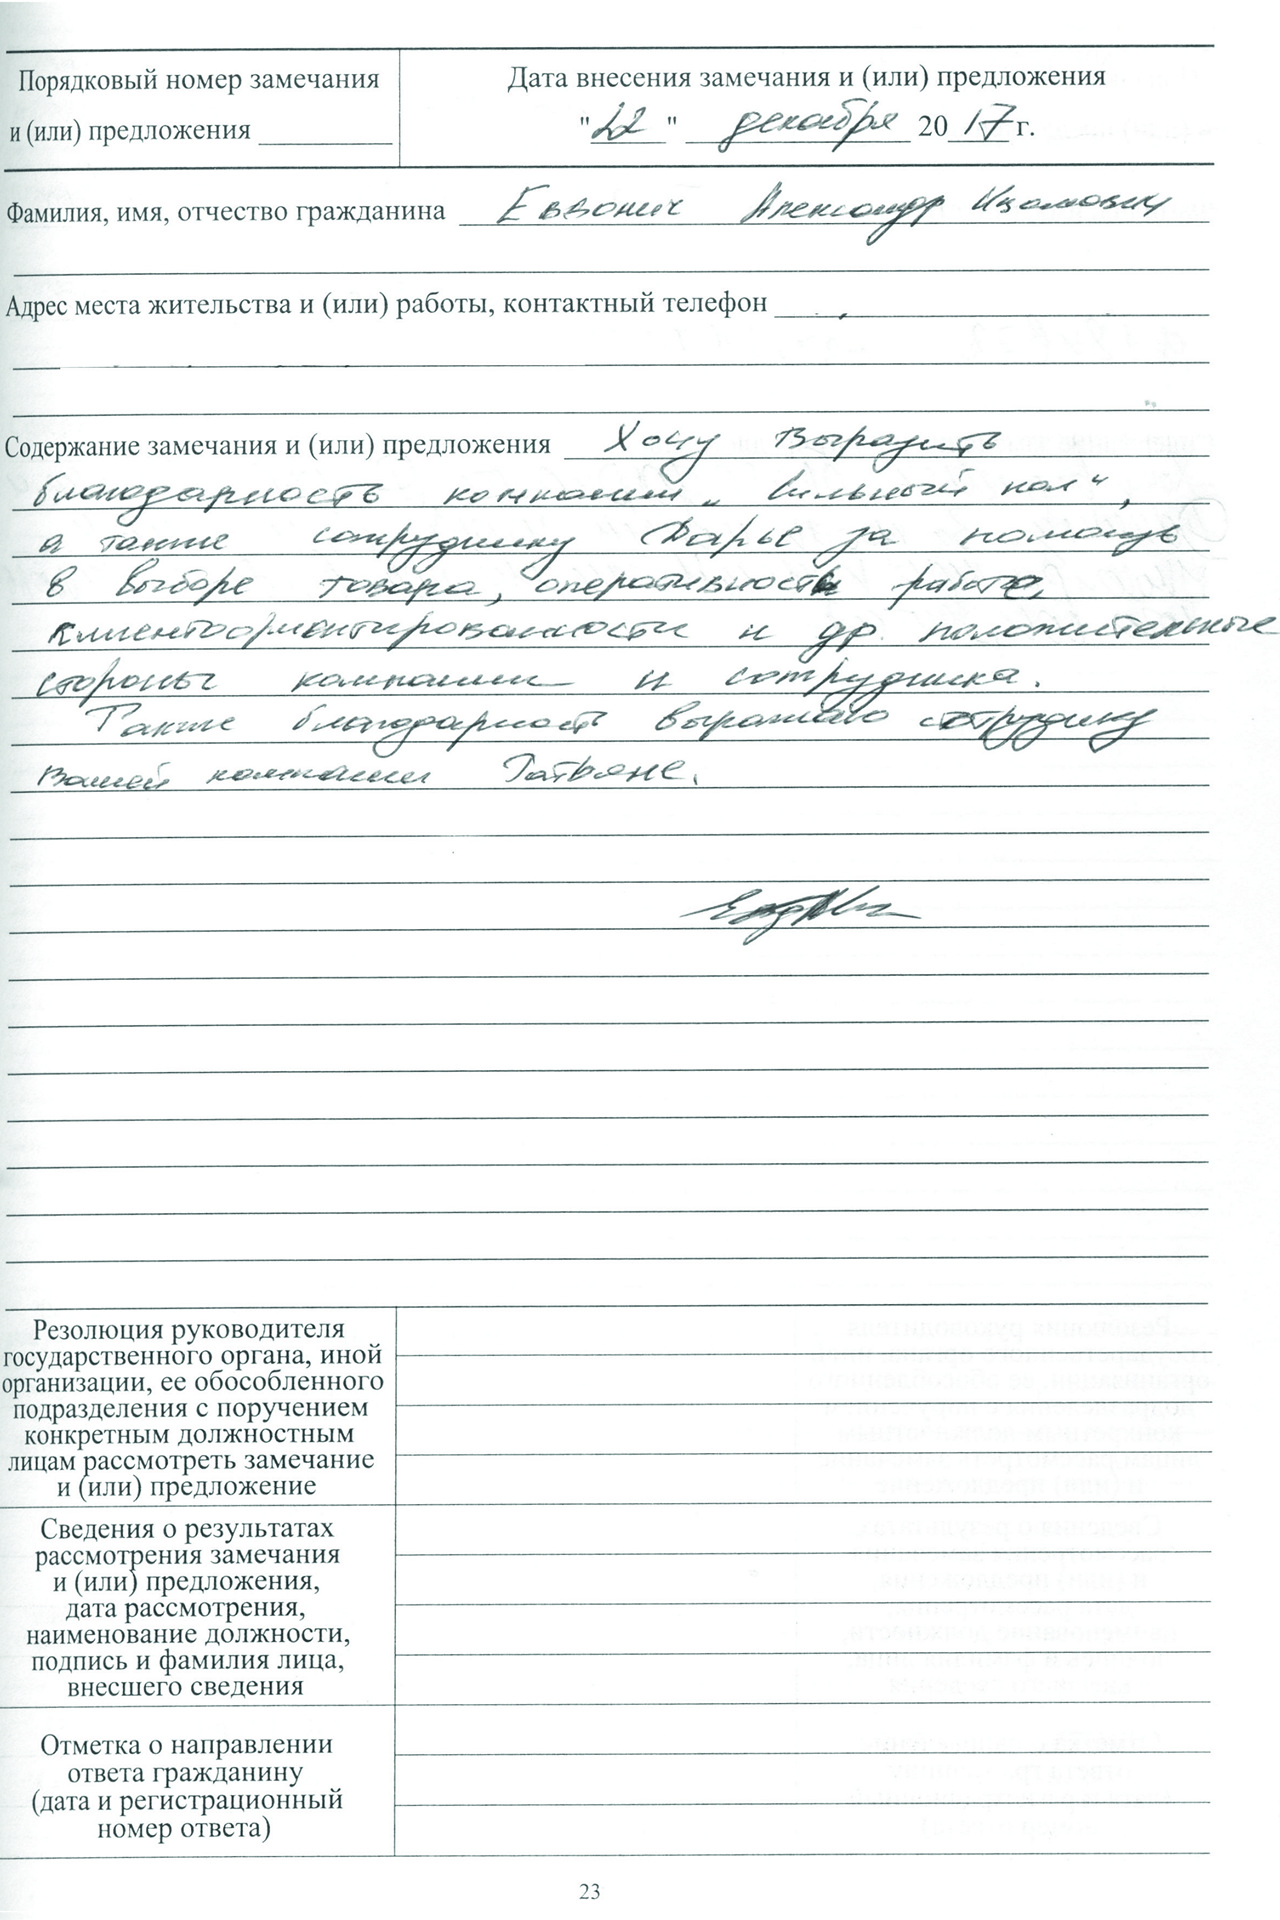 Порядковый номер замечания
и (или) предложения
Дата внесения замечания и (или) предложения
"22" декабря 2017 г.
Фамилия, имя, отчество гражданина Александр
Адрес места жительства и (или) работы, контактный телефон
Содержание замечания и (или) предложения Хочу Выразить
благодарность компании „Сильный пол",
а также сотруднику Дарье за помощь
в выборе товара, оперативность работе,
клиентоориентированности и др. положительные
стороны компании и сотрудника.
Также благодарность выражаю сотруднику
Вашей компании Татьяне.
Резолюция руководителя
государственного органа, иной
организации, ее обособленного
подразделения с поручением
конкретным должностным
лицам рассмотреть замечание
и (или) предложение
Сведения о результатах
рассмотрения замечания
и (или) предложения,
дата рассмотрения,
наименование должности,
подпись и фамилия лица,
внесшего сведения
Отметка о направлении
ответа гражданину
(дата и регистрационный
номер ответа)
23